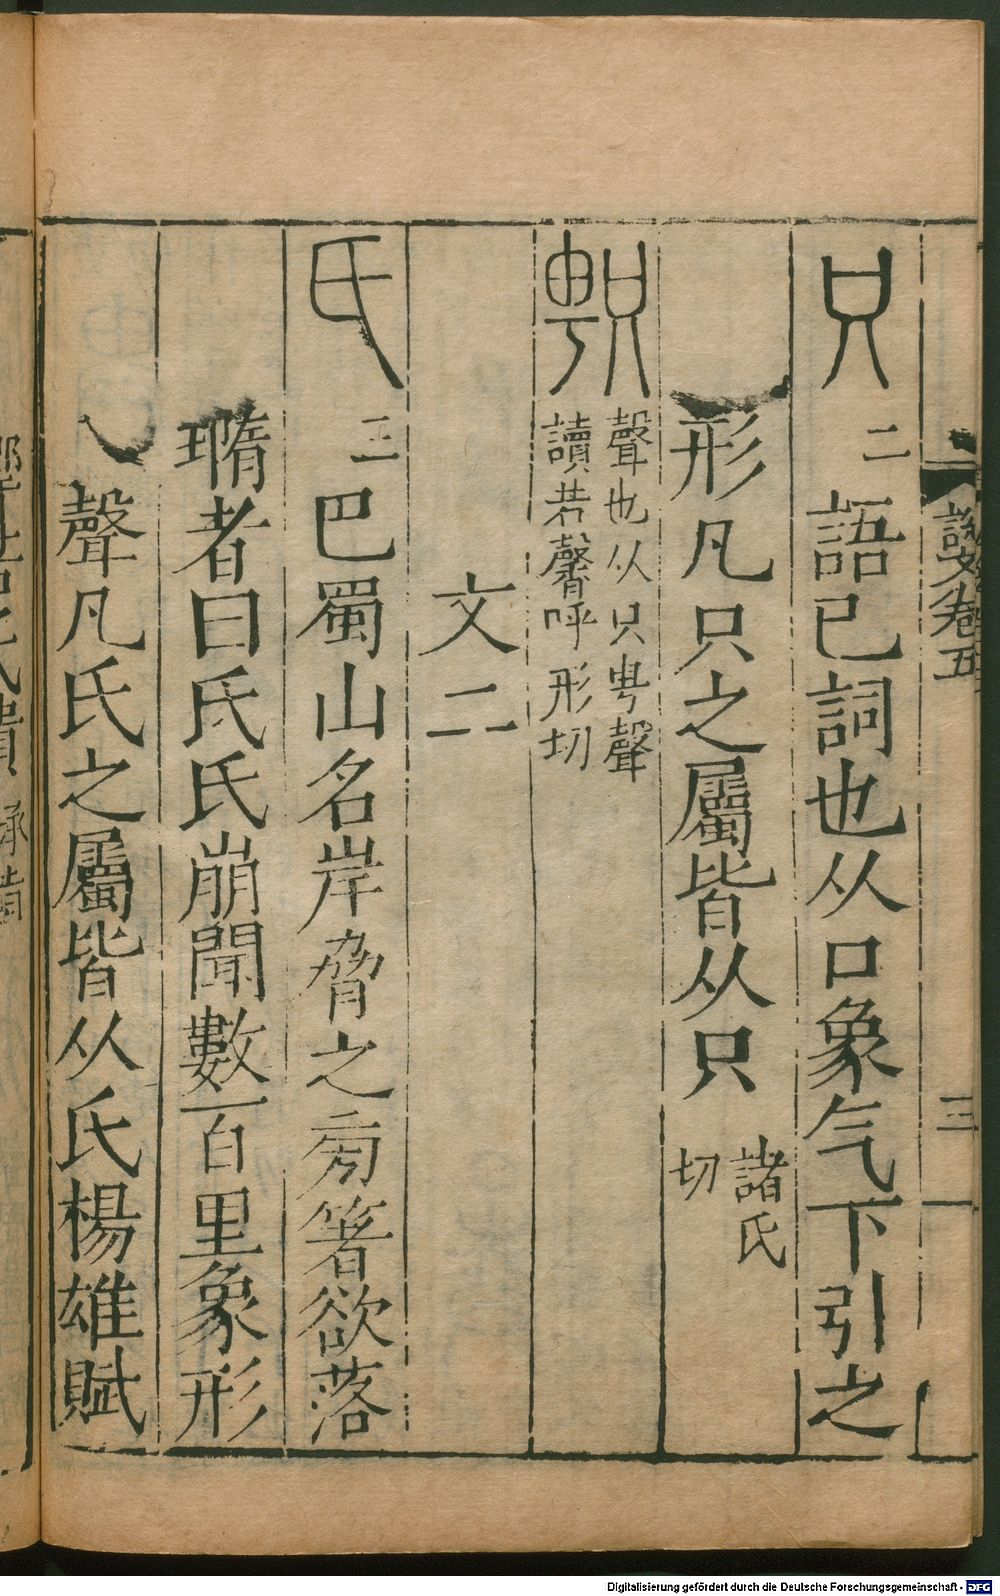 說文卷五
三
只 二 語已詞也从口象气下引之
形凡只之屬皆从只 諸氏切
聲也从只甹聲
讀若馨呼形切
文二
氏 二 巴蜀山名岸脅之㫄箸欲落
墮者曰氏氏崩聞數百里象形
乁聲凡氏之屬皆从氏楊雄賦
Digitalisierung gefördert durch die Deutsche Forschungsgemeinschaft - DFG